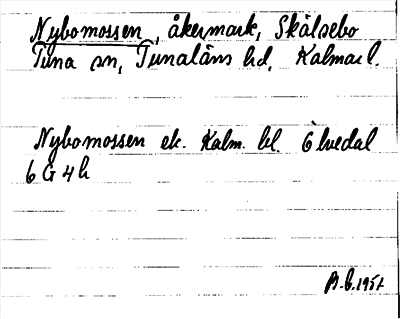 Nybomossen, åkermark, Skälsebo
Tuna sn, Tunaläns hd, Kalmar l.
Nybomossen ek. Kalm. bl. Ölvedal
6 G 4 h